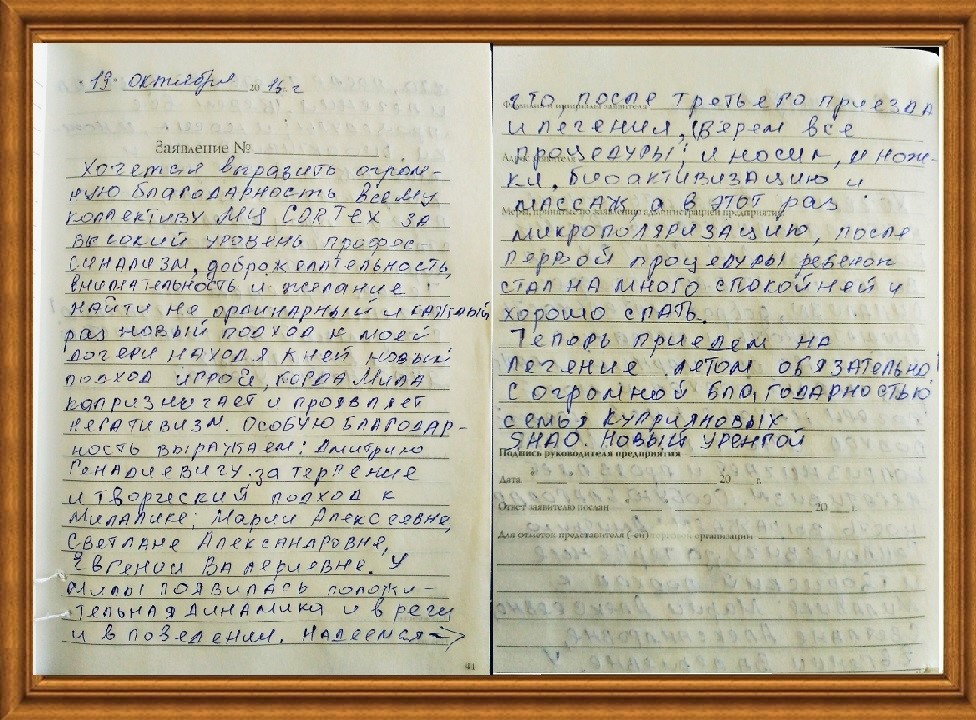 19 октября 2016 г
Заявление №
Хочется выразить огром-
ную благодарность всему
коллективу МЦ CORTEX за
высокий уровень профес
синализм, доброжелательность,
внимательность и желание
найти не ординарный и каждый
раз новый подход к моей
дочери находя к ней новый
подход игрой, когда Мила
капризничает и проявляет
негативизм. Особую благодар-
ность выражаем: Дмитрию
Генадиевичу за терпение
и творческий подход к
Милалике; Марии Алексеевне,
Светлане Александровне,
Евгении Валериевне. У
Милы появилась положи-
тельная динамика и в речи
и в поведении. Надеемся
41
что после третьего приезда
Фамилия и инициалы заявителя
и лечения, (Берем все
Адрес заявителя
процедуры: и носик, и нож-
ки, биоактивизацию и
массаж а в этот раз
Меры, принятые по заявлению администрацией предприятия
микрополяризацию, после
первой процедуры ребенок
стал на много спокойней и
хорошо спать.
Теперь приедем на
лечение летом обязательно!
С огромной благодарностью
семья Куприяновых
ЯНАО. Новый Уренгой
Подпись руководителя предприятия
Дата 20 г.
Ответ заявителю послан 20 г.
Для отметок представителя (-ей) торговой организации